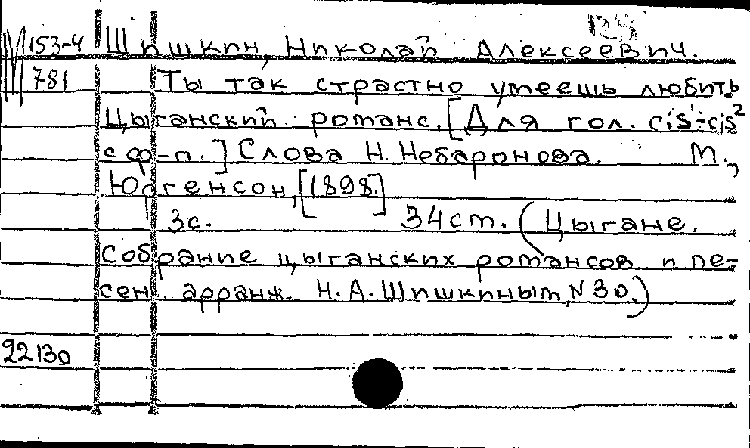 153-4 Шишкин, Николай Алексеевич.
781 Ты так страстно умеешь любить
Цыганский романс. [Для гол. cis¹-cis²
с ф-п.] Слова Н. Небаронова. М.,
Юргенсон, [1898.]
3с. 34см. (Цыгане.
Собрание цыганских романсов и пе-
сен арранж. Н.А. Шишкиным, N 30.)
22130